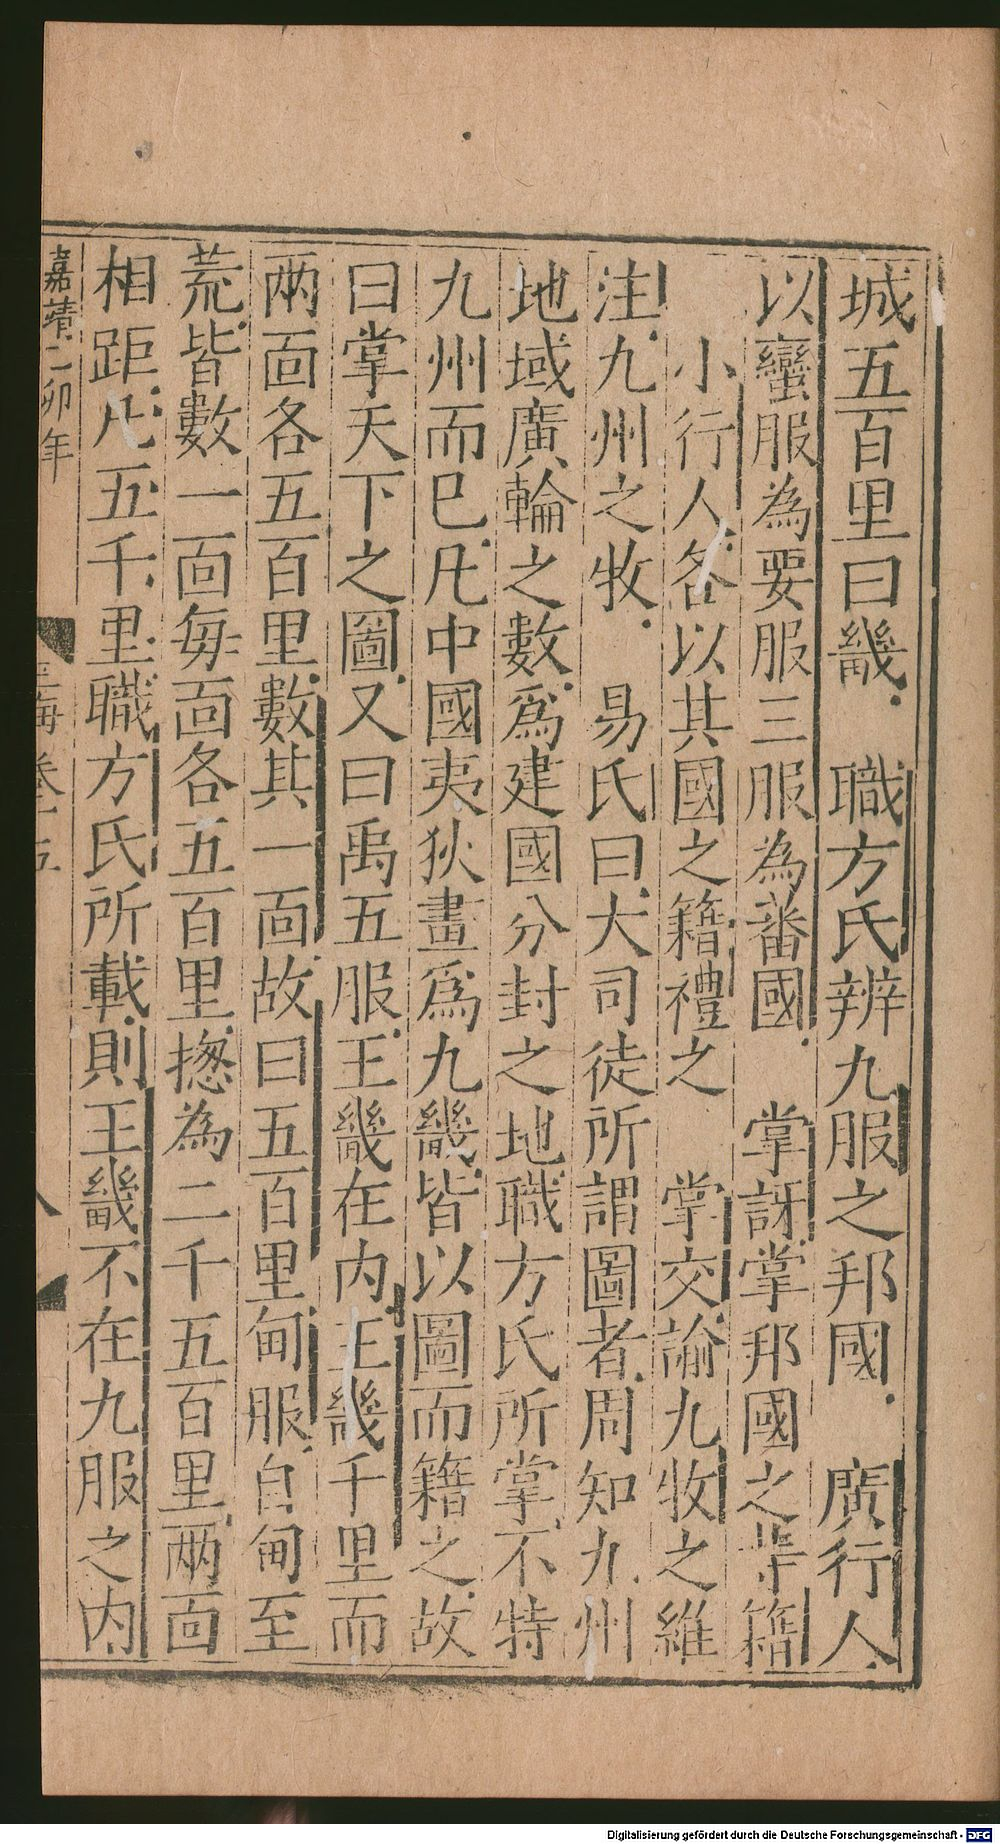 城五百里曰畿　職方氏辨九服之邦國　廣行人
以蠻服為要服三服為蕃國　掌訝掌邦國之等籍
小行人各以其國之籍禮之　掌交諭九牧之維
注九州之牧　易氏曰大司徒所謂圖者周知九州
地域廣輪之數爲建國分封之地職方氏所掌不特
九州而巳凡中國夷狄畫爲九畿皆以圖而籍之故
曰掌天下之圖又曰禹五服王畿在内王畿千里而
兩面各五百里數其一面故曰五百里甸服自甸至
荒皆數一面每面各五百里揔為二千五百里兩面
相距凡五千里職方氏所載則王畿不在九服之内
嘉靖乙卯年
玉海卷十五
八
Digitalisierung gefördert durch die Deutsche Forschungsgemeinschaft - DFG